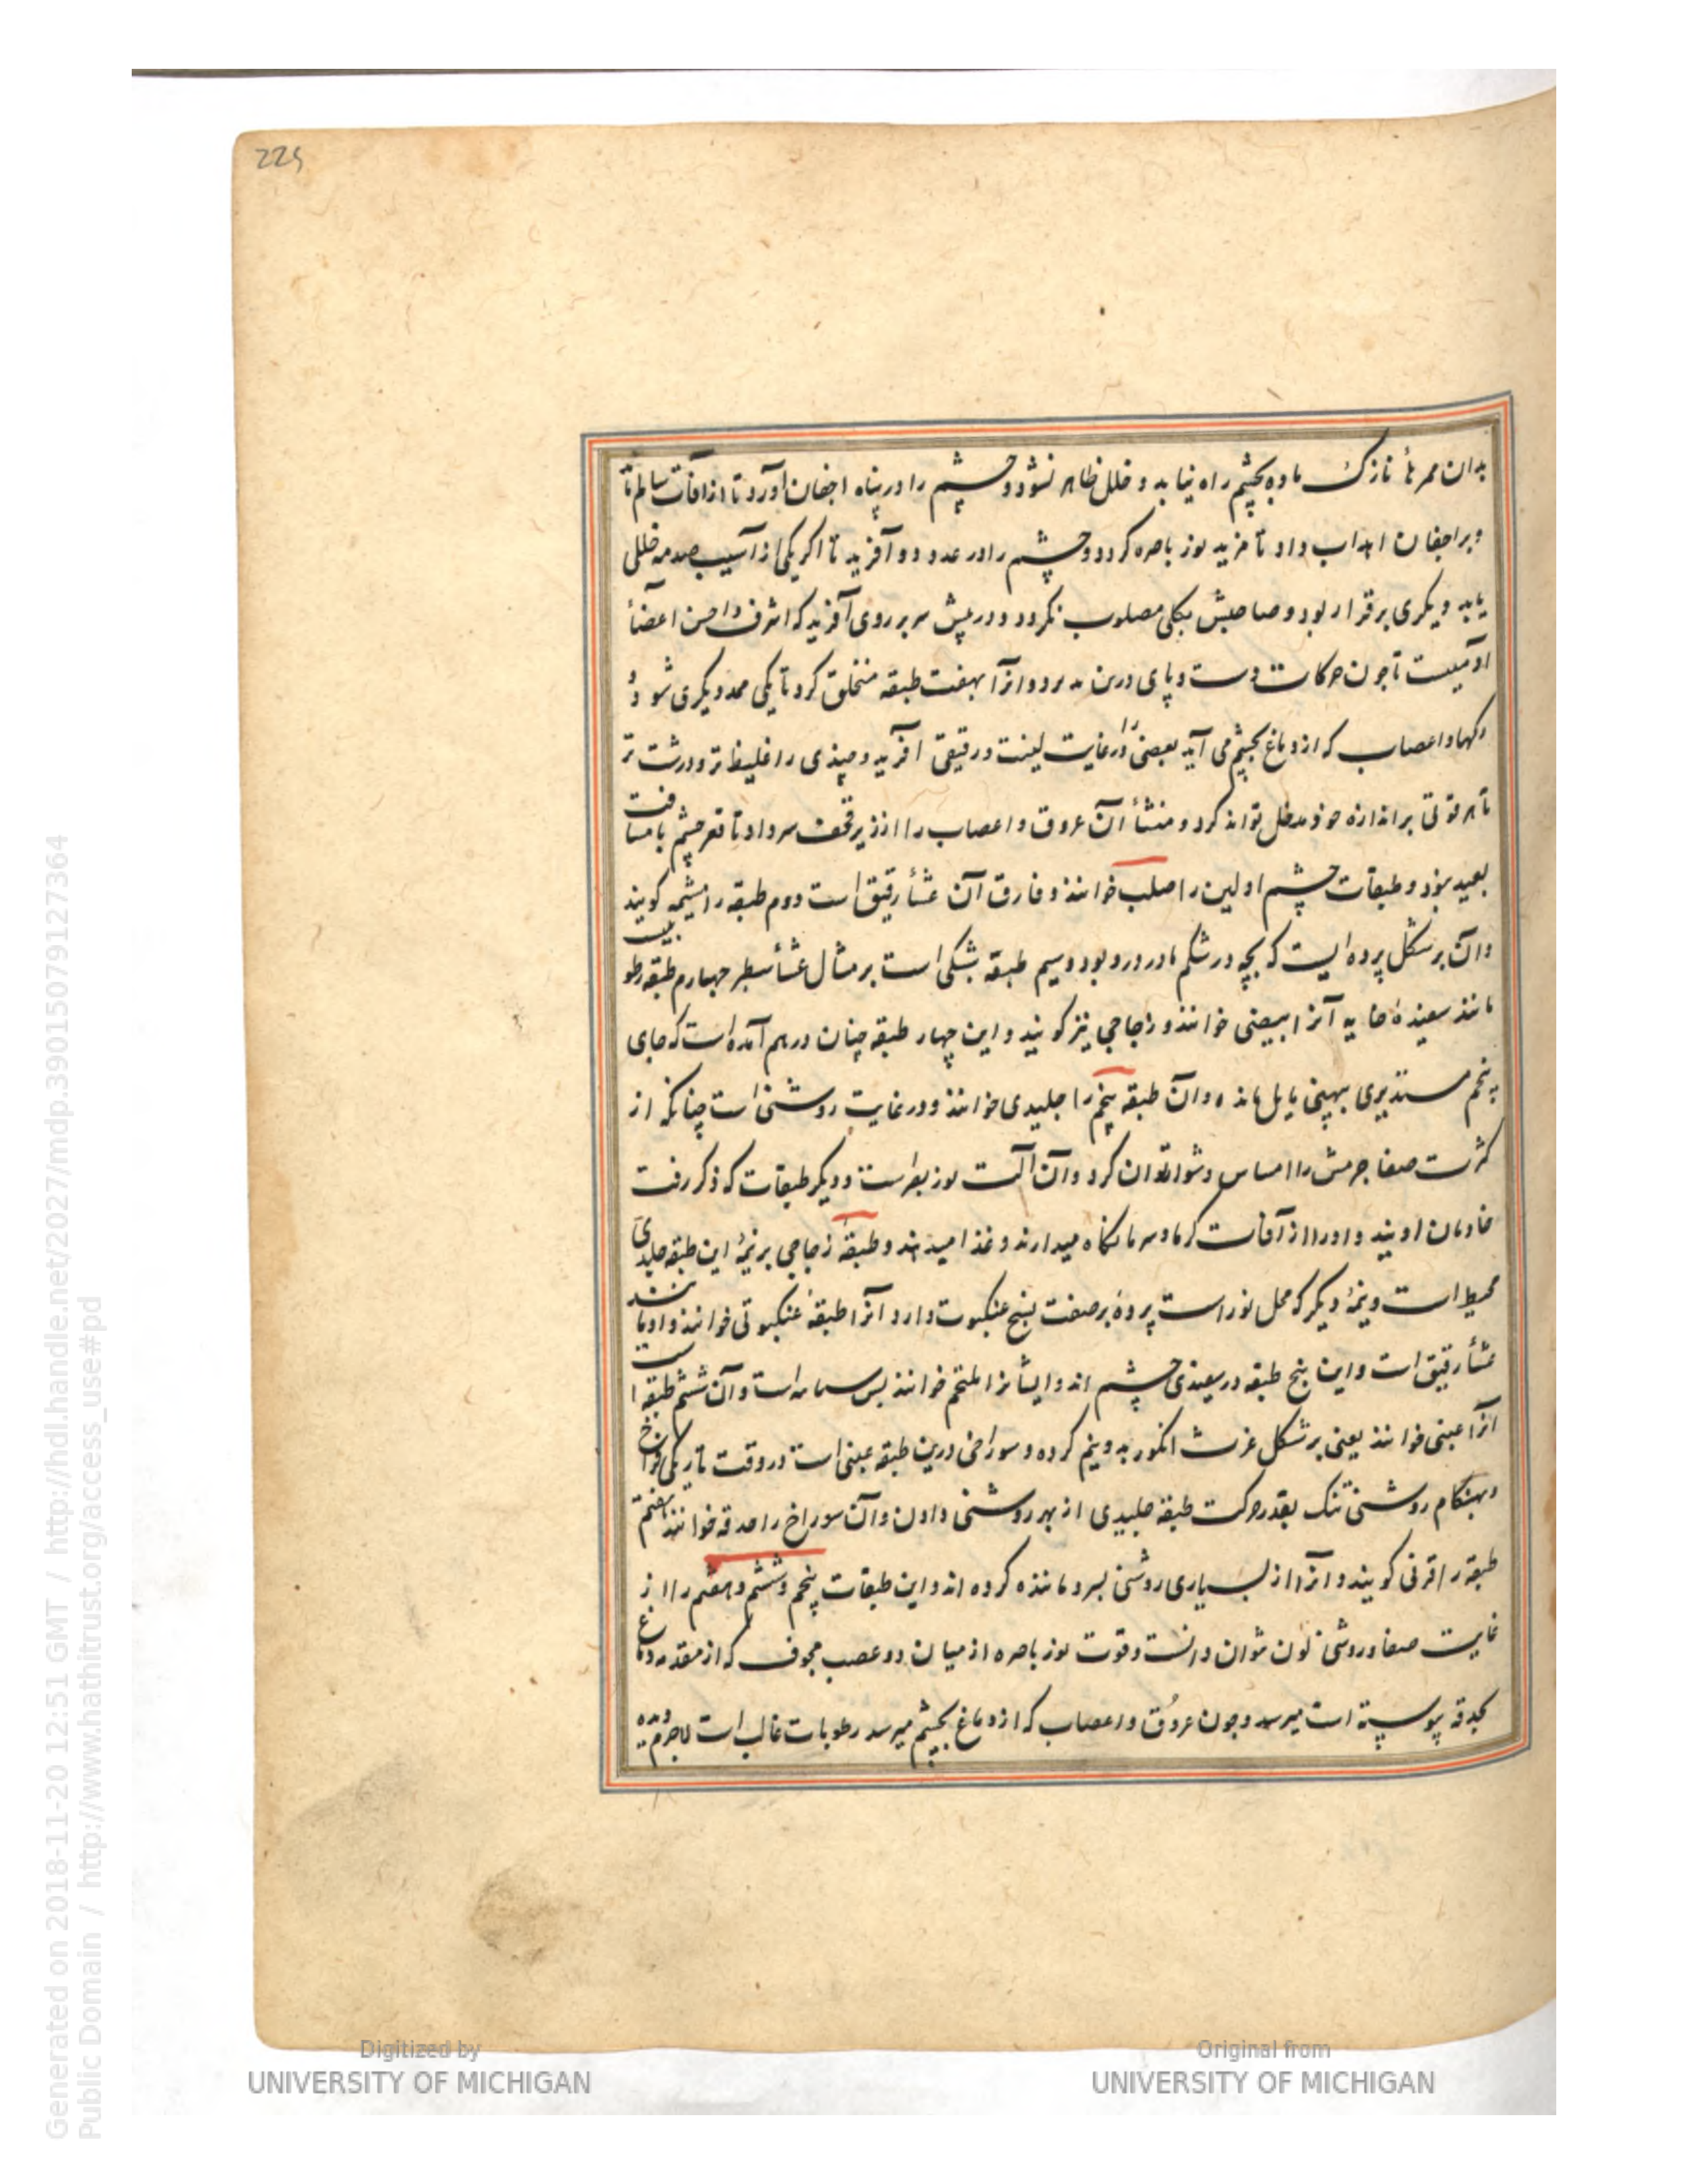 225
بدان ممرهاٴ نازک ماده بچشم راه نیابد و خلل ظاهر نشود و چشم را در پناه اجفان آورد تا از آفات سالم ماند
و بر اجفان اهداب داد تا مزید نور باصره کردد و چشم را در عدد دو آفرید تا اکر یکی از آسیب صدمه خللی
یابد دیکری برقرار بود و صاحبش بکلی مصلوب نکردد و در پیش سر بر روی آفرید که اشرف و احسن اعضأ
آدمیست تا چون حرکات دست و پای درین و ازآ بهفت طبقه منخلق کرد تا یکی ممد دیکری شود و
رکها و اعصاب که از دماغ بچشم می آید بعضی را در غایت لینت و رقیقی آفرید و چندی را غلیظ تر و درشت تر
تا هر قوتی بر اندازه خود مدخل تواند کرد و منشأ آن عروق و اعصاب را از زیر قحف سر داد تا قعر چشم با مسافت
بعید بود و طبقات چشم اولین را صلب خوانند و فارق آن غشأ رقیق است دوم طبقه را مشیمه کویند
و آن بر شکل پرده ایست که بچه در شکم مادر درو بود و سیم طبقه شبکی است بر مثال غشأ سطبر چهارم طبقه رطوبیست
مانند سفیده خایه آنرا بیضی خوانند و زجاجی نیز کویند و این چهار طبقه چنان درهم آمده است که جای
پنجم مستدیری بپهنی مایل مانده و آن طبقه پنجم را جلیدی خوانند و در غایت روشنی است چنانکه از
کثرت صفا جرمش را امساس دشوار توان کرد و آن آلت نور بصر است و دیکر طبقات که ذکر رفت
خادمان اویند و او را از آفات کرما و سرما نکاه میدارند و غذا میدهند و طبقهٔ زجاجی بر نیمهٔ این طبقه جلیدی
محیط است و نیمهٔ دیکر که محل نور است پردهٔ بر صفت نسج عنکبوت دارد آنرا طبقهٔ عنکبوتی خوانند و او مانند
غشأ رقیق است و این پنج طبقه در سفیدی چشم اند و ایشانرا ملتحم خوانند پس سیاهه است و آن ششم طبقه است
آنرا عنبی خوانند یعنی بر شکل غژب انکور بدو نیم کرده و سوراخی درین طبقه عنبی است در وقت تاریکی فراخ
و بهنکام روشنی تنک بقدر حرکت طبقهٔ جلیدی از بهر روشنی دادن و آن سوراخ را حدقه خوانند هفتم
طبقه را قرنی کویند و آنرا از بسیاری روشنی بسرو مانند کرده اند و این طبقات پنجم و ششم و هفتم را از
غایت صفا و روشنی لون نتوان دانست و قوت نور باصره از میان دو عصب مجوف که از مقدمه دماغ
بحدقه پیوسته است میرسد و چون عروُق و اعصاب که از دماغ بچشم میرسد رطوبات غالب است لاجرم دیده
Generated on 2018-11-20 12:51 GMT / http://hdl.handle.net/2027/mdp.39015079127364
Public Domain / http://www.hathitrust.org/access_use#pd
Digitized by
UNIVERSITY OF MICHIGAN
Original from
UNIVERSITY OF MICHIGAN